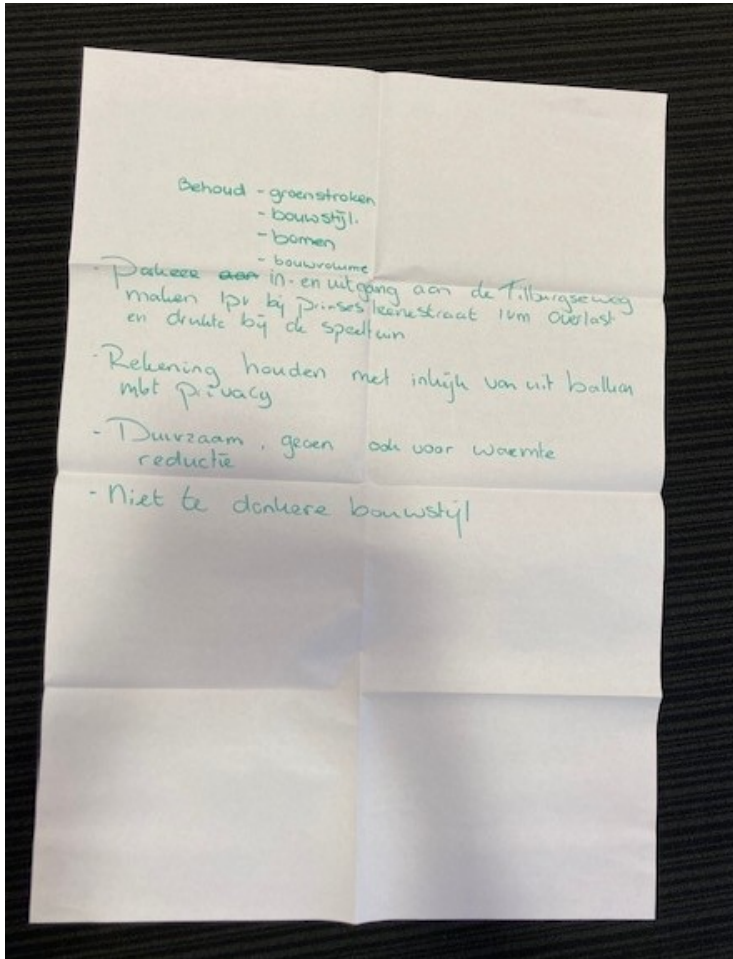 Behoud - groenstroken
- bouwstijl.
- bomen
- bouwvolume
- Parkeer aan in- en uitgang aan de Tilburgseweg
maken ipv bij prinses Irenestraat ivm overlast
en drukte bij de speeltuin
- Rekening houden met inkijk van uit balkon
mbt privacy
- Duurzaam, groen ook voor warmte
reductie
- Niet te donkere bouwstijl